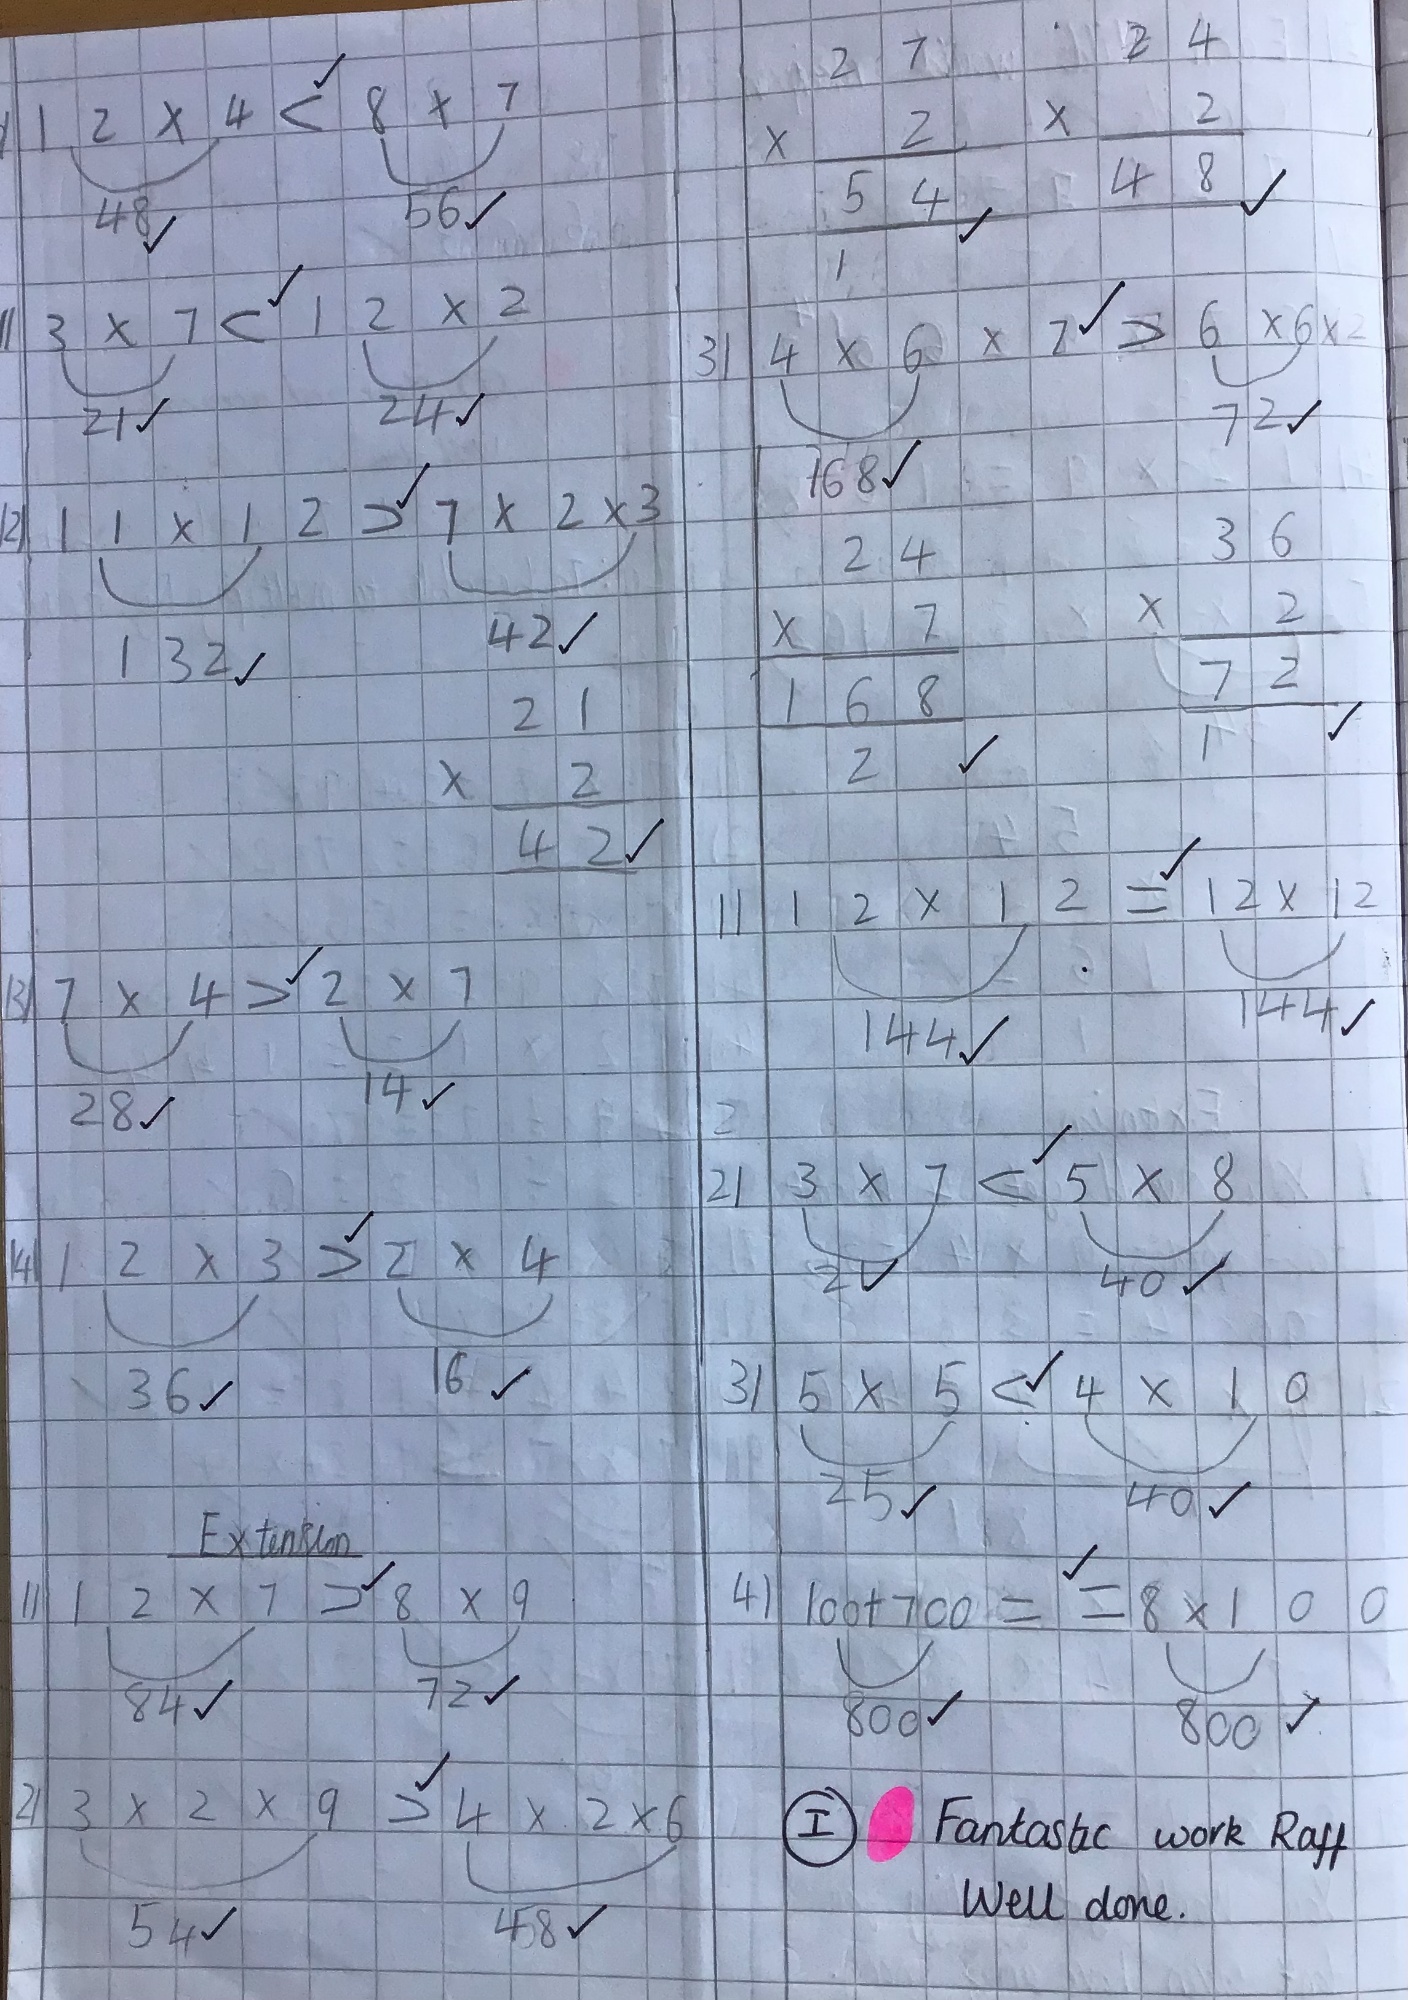 1 2 x 4 < 8 x 7
48 ✓ 56 ✓
11) 3 x 7 < 1 2 x 2
21 ✓ 24 ✓
12) 1 1 x 1 2 > 7 x 2 x 3
132 ✓ 42 ✓
2 1
x 2
4 2 ✓
13) 7 x 4 > 2 x 7
28 ✓ 14 ✓
14) 1 2 x 3 > 2 x 4
36 ✓ 16 ✓
Extension
1) 1 2 x 7 > 8 x 9
84 ✓ 72 ✓
2) 3 x 2 x 9 > 4 x 2 x 6
54 ✓ 48 ✓
2 7 2 4
x 2 x 2
5 4 ✓ 4 8 ✓
1
3) 4 x 6 x 7 > 6 x 6 x 2
168 ✓ 72 ✓
2 4 3 6
x 7 x 2
1 6 8 7 2
2 ✓ 1 ✓
1) 1 2 x 1 2 = 12 x 12
144 ✓ 144 ✓
2) 3 x 7 < 5 x 8
21 ✓ 40 ✓
3) 5 x 5 < 4 x 1 0
25 ✓ 40 ✓
4) 100+700 = = 8 x 1 0 0
800 ✓ 800 ✓
I Fantastic work Raff
Well done.